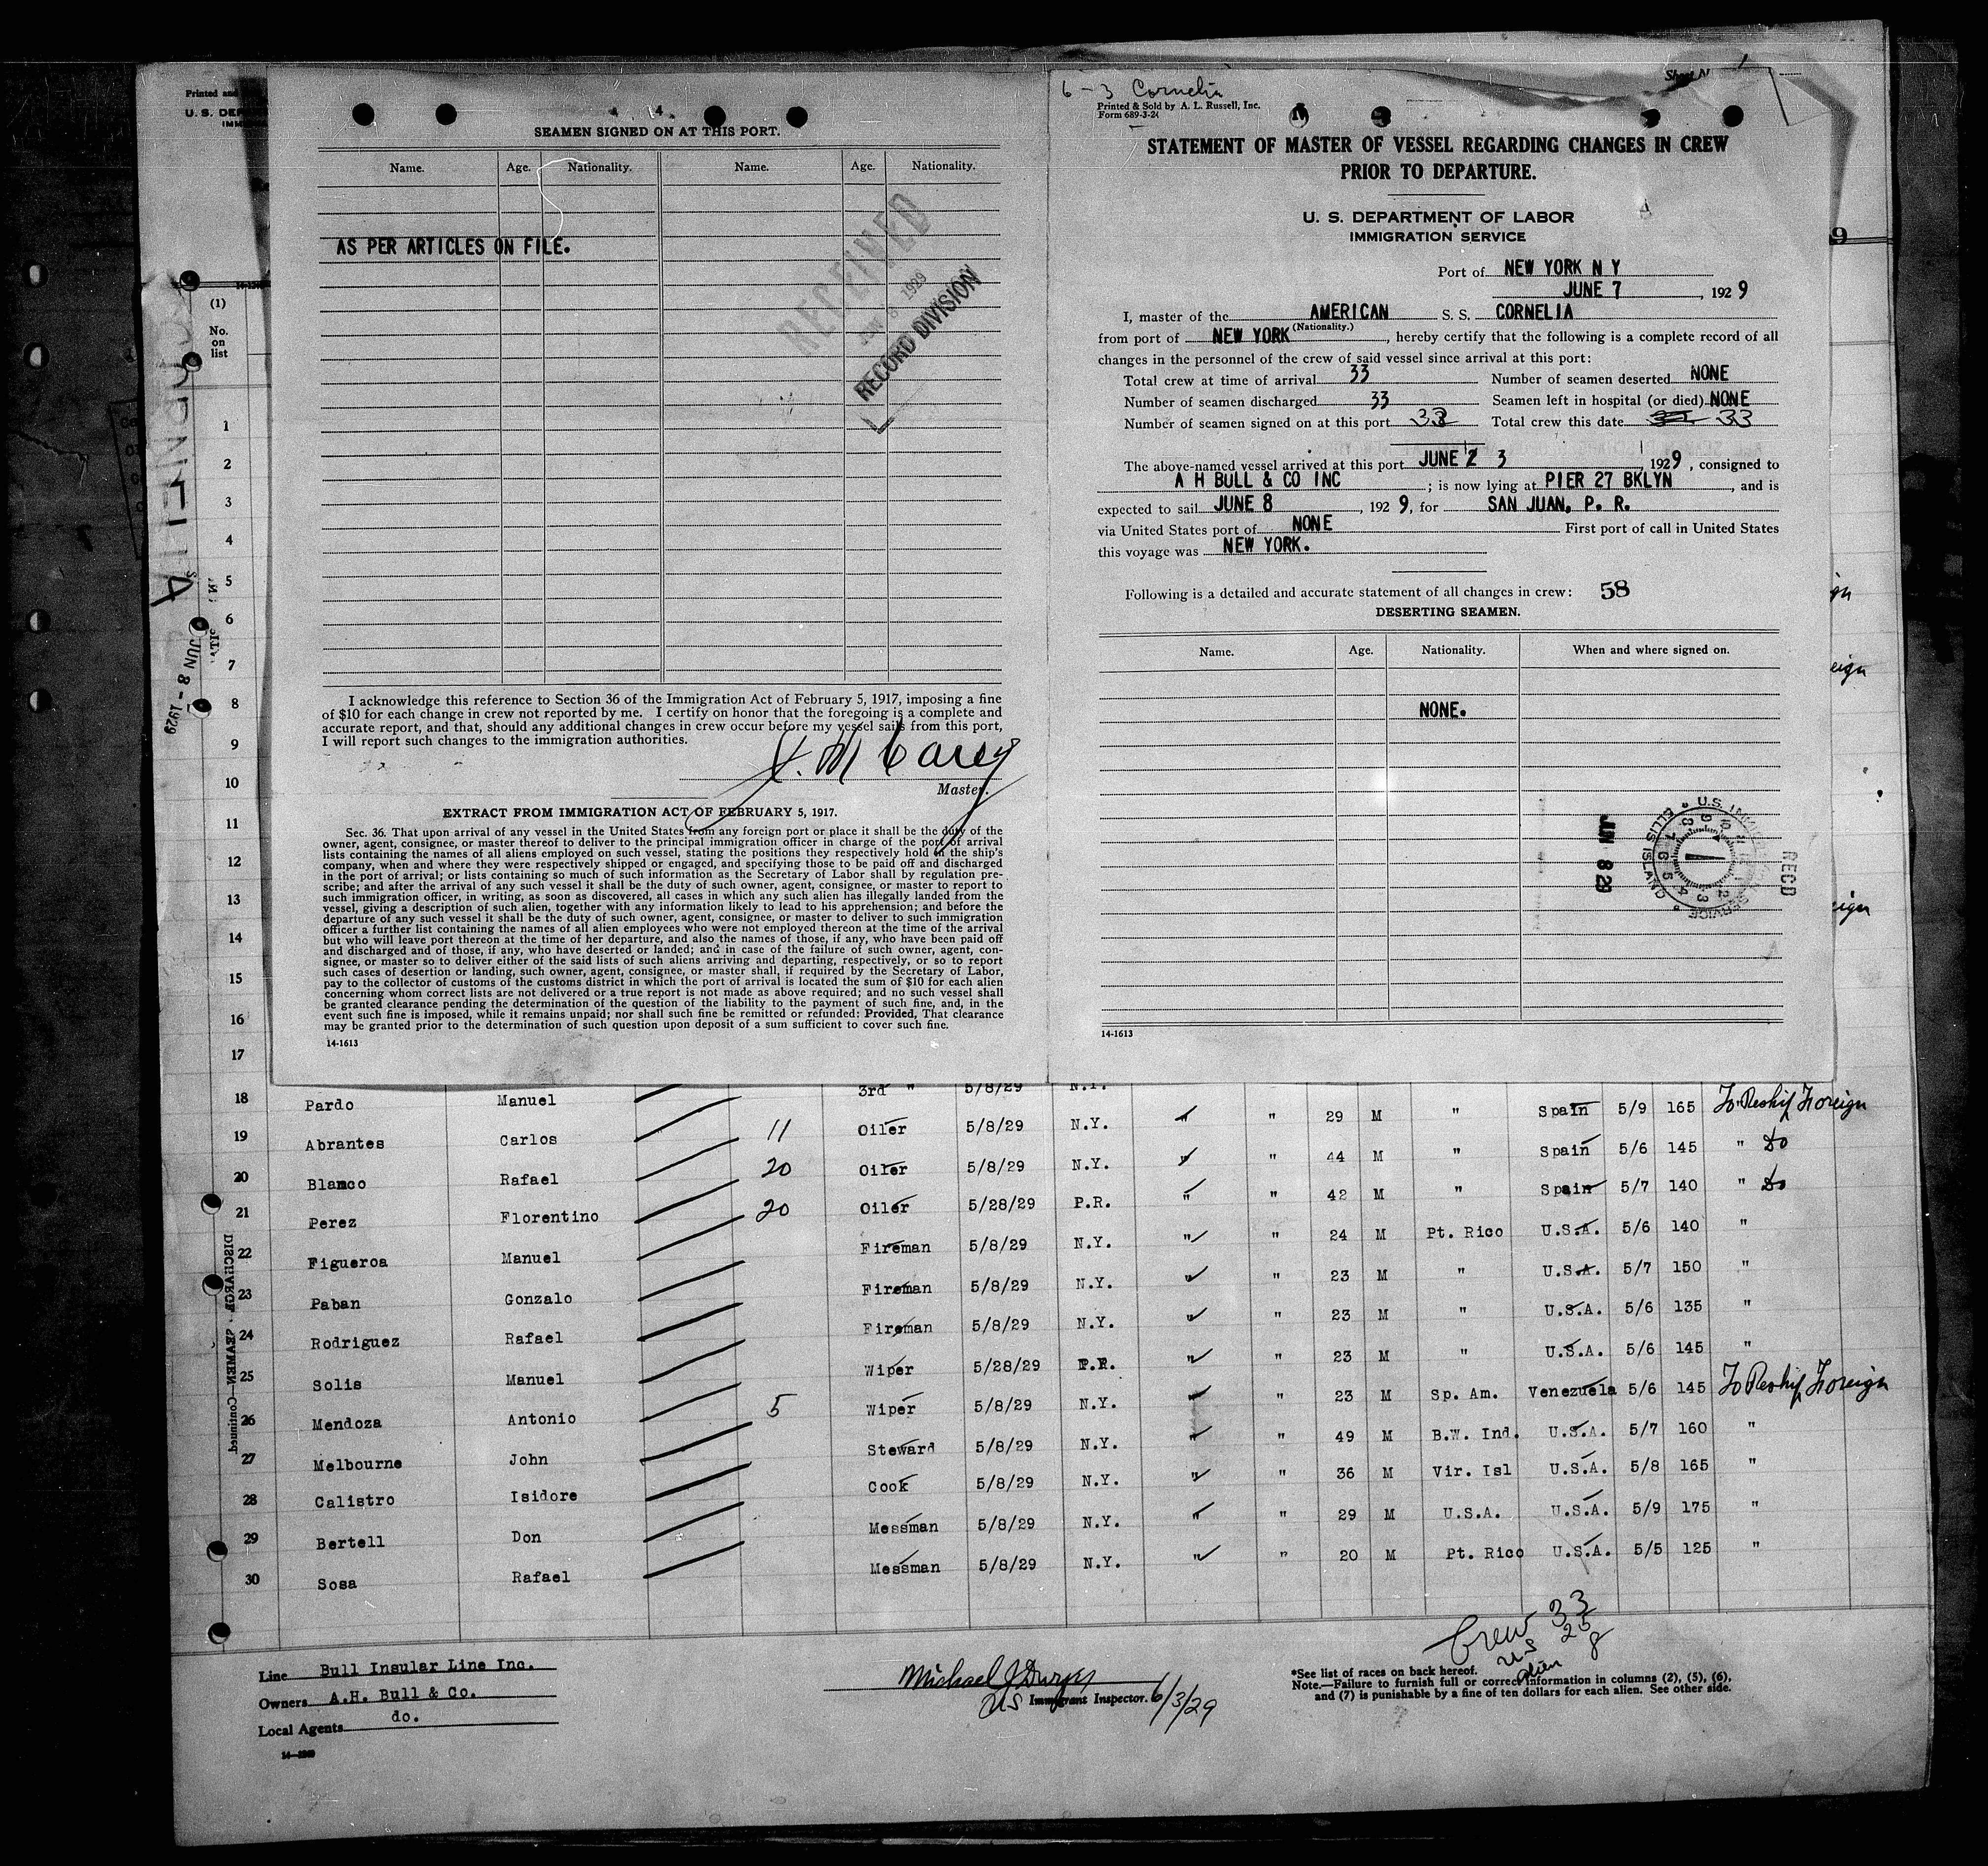 Printed and
U. S. DEP
IMM
(1)
No.
on
list
CORNELIA
JUN 8 - 1929
SEAMEN SIGNED ON AT THIS PORT.
Name. Age. Nationality. Name. Age. Nationality.
AS PER ARTICLES ON FILE.
RECEIVED
1929
RECORD DIVISION
I acknowledge this reference to Section 36 of the Immigration Act of February 5, 1917, imposing a fine
of $10 for each change in crew not reported by me. I certify on honor that the foregoing is a complete and
accurate report, and that, should any additional changes in crew occur before my vessel sails from this port,
I will report such changes to the immigration authorities.
Carey
Master.
EXTRACT FROM IMMIGRATION ACT OF FEBRUARY 5, 1917.
Sec. 36. That upon arrival of any vessel in the United States from any foreign port or place it shall be the duty of the
owner, agent, consignee, or master thereof to deliver to the principal immigration officer in charge of the port of arrival
lists containing the names of all aliens employed on such vessel, stating the positions they respectively hold in the ship's
company, when and where they were respectively shipped or engaged, and specifying those to be paid off and discharged
in the port of arrival; or lists containing so much of such information as the Secretary of Labor shall by regulation pre-
scribe; and after the arrival of any such vessel it shall be the duty of such owner, agent, consignee, or master to report to
such immigration officer, in writing, as soon as discovered, all cases in which any such alien has illegally landed from the
vessel, giving a description of such alien, together with any information likely to lead to his apprehension; and before the
departure of any such vessel it shall be the duty of such owner, agent, consignee, or master to deliver to such immigration
officer a further list containing the names of all alien employees who were not employed thereon at the time of the arrival
but who will leave port thereon at the time of her departure, and also the names of those, if any, who have been paid off
and discharged and of those, if any, who have deserted or landed; and in case of the failure of such owner, agent, con-
signee, or master so to deliver either of the said lists of such aliens arriving and departing, respectively, or so to report
such cases of desertion or landing, such owner, agent, consignee, or master shall, if required by the Secretary of Labor,
pay to the collector of customs of the customs district in which the port of arrival is located the sum of $10 for each alien
concerning whom correct lists are not delivered or a true report is not made as above required; and no such vessel shall
be granted clearance pending the determination of the question of the liability to the payment of such fine, and, in the
event such fine is imposed, while it remains unpaid; nor shall such fine be remitted or refunded: Provided, That clearance
may be granted prior to the determination of such question upon deposit of a sum sufficient to cover such fine.
14-1613
6 - 3 Cornelia
Printed & Sold by A. L. Russell, Inc.
Form 689-3-24
STATEMENT OF MASTER OF VESSEL REGARDING CHANGES IN CREW
PRIOR TO DEPARTURE.
U. S. DEPARTMENT OF LABOR
IMMIGRATION SERVICE
Port of NEW YORK N Y
JUNE 7, 1929
I, master of the AMERICAN S. S. CORNELIA
(Nationality.)
from port of NEW YORK, hereby certify that the following is a complete record of all
changes in the personnel of the crew of said vessel since arrival at this port:
Total crew at time of arrival 33 Number of seamen deserted NONE
Number of seamen discharged 33 Seamen left in hospital (or died) NONE
Number of seamen signed on at this port 33 Total crew this date 33
The above-named vessel arrived at this port JUNE 3 1929, consigned to
A H BULL & CO INC; is now lying at PIER 27 BKLYN, and is
expected to sail JUNE 8, 1929, for SAN JUAN, P. R.
via United States port of NONE First port of call in United States
this voyage was NEW YORK.
Following is a detailed and accurate statement of all changes in crew: 58
DESERTING SEAMEN.
Name. Age. Nationality. When and where signed on.
NONE.
JUN 8 29
U.S. IMMI SERVICE ELLIS ISLAND
RECD
14-1613
1
2
3
4
5
6
7
8
9
10
11
12
13
14
15
16
17
3rd " 5/8/29 N.Y.
18 Pardo Manuel Oiler 5/8/29 N.Y. " " 29 M " Spain 5/9 165 To Reship Foreign
19 Abrantes Carlos 11 Oiler 5/8/29 N.Y. " " 44 M " Spain 5/6 145 " Do
20 Blanco Rafael 20 Oiler 5/28/29 P.R. " " 42 M " Spain 5/7 140 " Do
21 Perez Florentino 20 Fireman 5/8/29 N.Y. " " 24 M Pt. Rico U.S.A. 5/6 140 "
22 Figueroa Manuel Fireman 5/8/29 N.Y. " " 23 M " U.S.A. 5/7 150 "
23 Paban Gonzalo Fireman 5/8/29 N.Y. " " 23 M U.S.A. 5/6 135 "
24 Rodriguez Rafael Wiper 5/28/29 P.R. " " 23 M " U.S.A. 5/6 145 "
25 Solis Manuel Wiper 5/8/29 N.Y. " 23 M Sp. Am. Venezuela 5/6 145 To Reship Foreign
26 Mendoza Antonio 5 Steward 5/8/29 N.Y. " " 49 M B.W. Ind. U.S.A. 5/7 160 "
27 Melbourne John Cook 5/8/29 N.Y. " " 36 M Vir. Isl U.S.A. 5/8 165 "
28 Calistro Isidore Messman 5/8/29 N.Y. " " 29 M U.S.A. U.S.A. 5/9 175 "
29 Bertell Don Messman 5/8/29 N.Y. " " 20 M Pt. Rico U.S.A. 5/5 125 "
30 Sosa Rafael
DISCHARGED SEAMEN—Continued
Crew 33
US 25
alien 8
Line Bull Insular Line Inc.
Owners A.H. Bull & Co.
Local Agents do.
14-1240
Michael J
US Immigrant Inspector. 6/3/29
*See list of races on back hereof.
Note.—Failure to furnish full or correct information in columns (2), (5), (6),
and (7) is punishable by a fine of ten dollars for each alien. See other side.